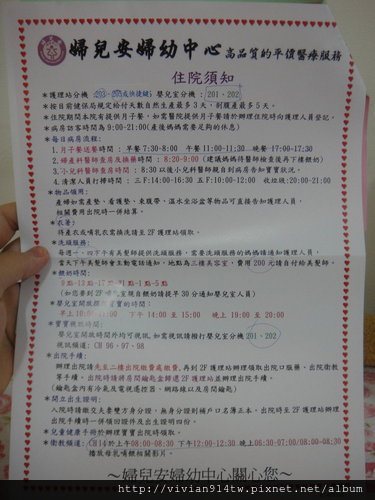 婦兒安婦幼中心 高品質的平價醫療服務
住院須知
*護理站分機:203、205或快捷鍵;嬰兒室分機:201、202
*按目前健保局規定給付天數自然生產最多3天,剖腹產最多5天。
*住院期間本院有提供月子餐,如需醫院提供月子餐請於辦理住院時向護理人員登記。
*病房訪客時間為9:00-21:00(產後媽媽需要足夠的休息)
*每日病房流程:
1.月子餐送餐時間:早餐7:30-8:00 午餐11:00-11:30 晚餐17:00-17:30
2.婦產科醫師查房及換藥時間:8:20-9:00(建議媽媽待醫師檢查後再下樓餵奶)
3.小兒科醫師查房時間:8:30以後小兒科醫師親自到病房告知寶寶狀況。
4.清潔人員打掃時間:三F:14:00-16:30 五F:10:00-12:00 收垃圾:20:00-21:00
*物品領用:
產婦如需產墊、看護墊、束腹帶、溫水坐浴盆等物品可直接告知護理人員,
相關費用出院時一併結算。
*衣著:
待產衣或哺乳衣需換洗請至2F護理站領取。
*洗頭服務:
每週一、四下午有美髮師提供洗頭服務,需要洗頭服務的媽媽請通知護理人員,
當天下午美髮師會主動電話通知,地點為三樓美容室,費用200元請自付給美髮師。
*餵奶時間:
9點-13點-17點-21點-1點-5點
(如您要到2F哺乳室親自餵奶請提早30分通知嬰兒室人員)
*嬰兒室開放探視寶寶的時間:
早上10:00至11:00 下午14:00至15:00 晚上19:00至20:00
*寶寶視訊時間:
嬰兒室開放時間外均可視訊,如需視訊請撥打嬰兒室分機201、202
視訊頻道:CH 96、97、98
*出院手續:
辦理出院請先至二樓出院櫃處繳費,再到2F護理站辦理領取出院口服藥、出院衛教
等手續。出院時請將房間鑰匙盒歸還2F護理站並辦理出院。
(鑰匙盒內有冷氣及電視遙控器、網路線以及房間鑰匙)
*開立出生證明:
入院時請繳交夫妻雙方身分證,無身分證則補戶口名簿正本,出院時至2F護理站辦理
出院手續時一併領回證件及出生證明四份。
*兒童健康手冊於辦理寶寶出院時領取。
*衛教頻道:CH14於上午08:00-08:30下午12:00-12:30晚上06:30-07:00/08:00-08:30
播放母乳哺餵相關影片。
~婦兒安婦幼中心關心您~
http://vivian914tw.pixnet.net/album